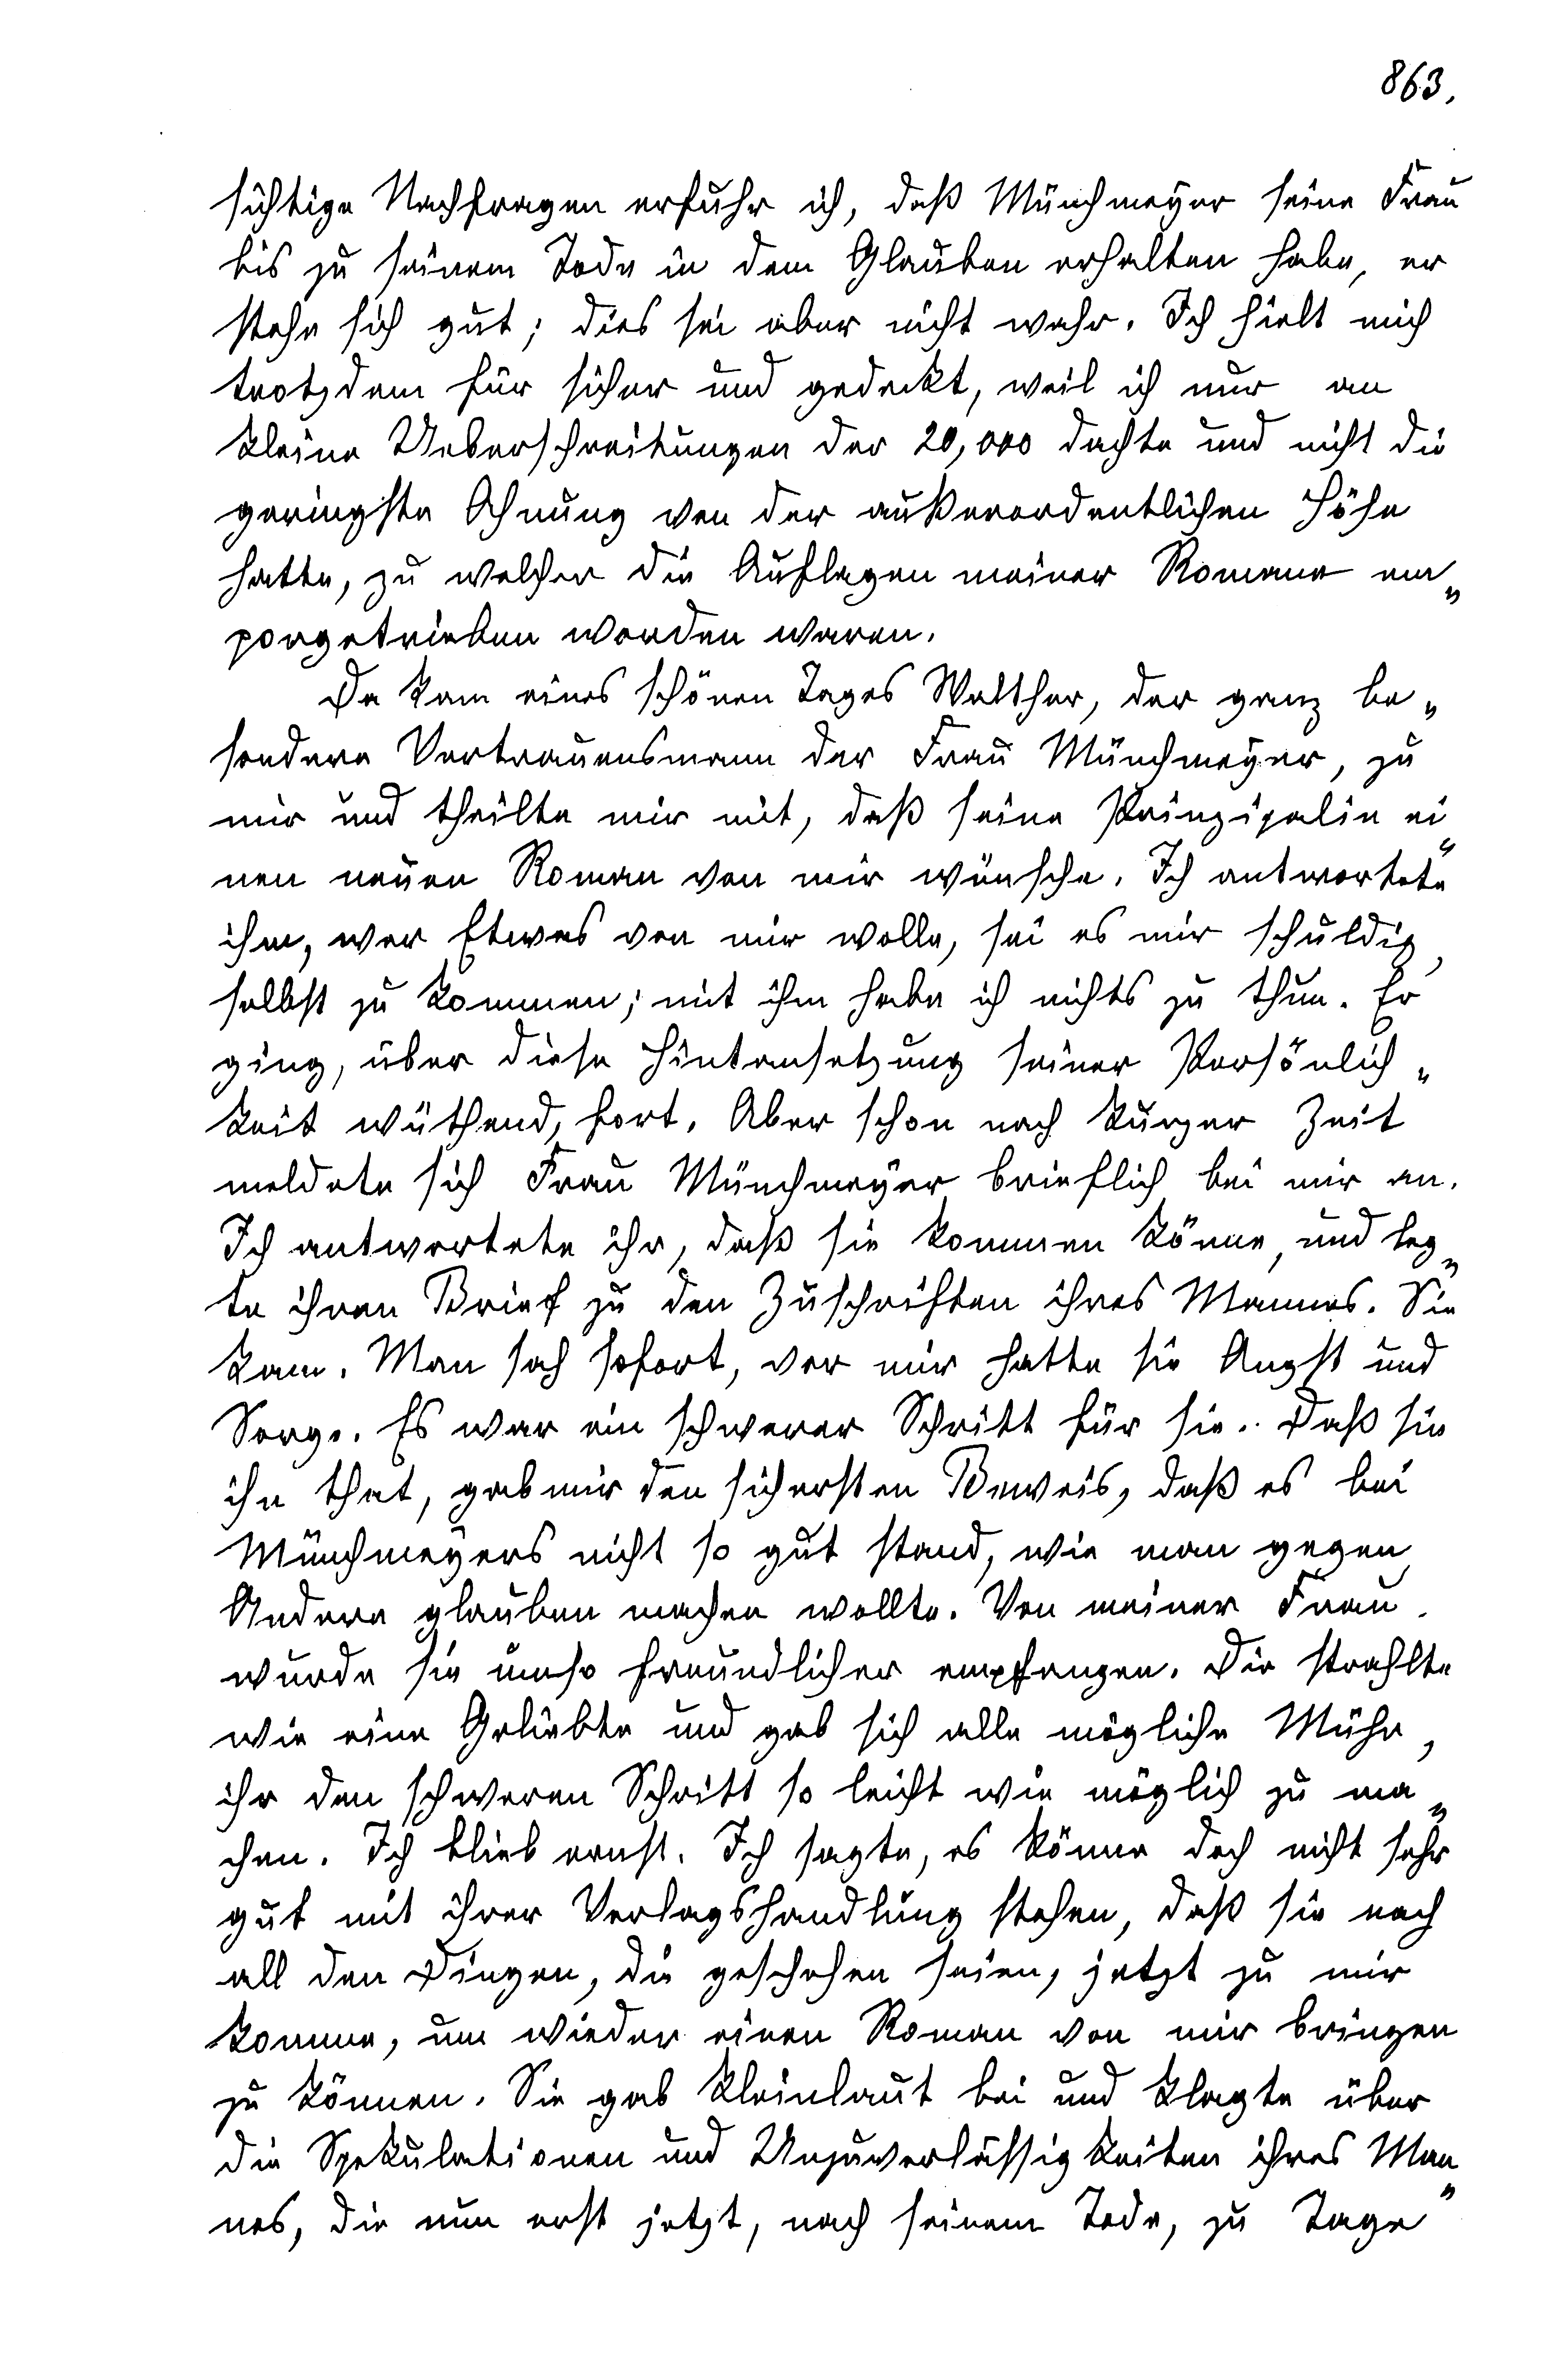 863.
sichtige Nachfragen erfuhr ich, daß Münchmeyer seine Frau
bis zu seinem Tode in dem Glauben erhalten habe, er
stehe sich gut; dies sei aber nicht wahr. Ich hielt mich
trotzdem für sicher und gedeckt, weil ich nur an
kleine Ueberschreitungen der 20,000 dachte und nicht die
geringste Ahnung von der außerordentlichen Höhe
hatte, zu welcher die Auflagen meiner Romane em„
porgetrieben worden waren.
Da kam eines schönen Tages Walther, der ganz be„
sondere Vertrauensmann der Frau Münchmeyer, zu
mir und theilte mir mit, daß seine Prinzipalin ei„
nen neuen Roman von mir wünsche. Ich antwortete
ihm, wer Etwas von mir wolle, sei es mir schuldig,
selbst zu kommen; mit ihm habe ich nichts zu thun. Er
ging, über diese Hintansetzung seiner Persönlich„
keit wüthend, fort. Aber schon nach kurzer Zeit
meldete sich Frau Münchmeyer brieflich bei mir an.
Ich antwortete ihr, daß sie kommen könne, und leg„
te ihren Brief zu den Zuschriften ihres Mannes. Sie
kam. Man sah sofort, vor mir hatte sie Angst und
Sorge. Es war ein schwerer Schritt für sie. Daß sie
ihn that, gab mir den sichersten Beweis, daß es bei
Münchmeyers nicht so gut stand, wie man gegen
Andere glauben machen wollte. Von meiner Frau
wurde sie umso freundlicher empfangen. Die strahlte
wie eine Geliebte und gab sich alle mögliche Mühe,
ihr den schweren Schritt so leicht wie möglich zu ma„
chen. Ich blieb ernst. Ich sagte, es könne doch nicht sehr
gut mit ihrer Verlagshandlung stehen, daß sie nach
all den Dingen, die geschehen seien, jetzt zu mir
komme, um wieder einen Roman von mir bringen
zu können. Sie gab kleinlaut bei und klagte über
die Spekulationen und Unzuverlässigkeiten ihres Man„
nes, die nun erst jetzt, nach seinem Tode, zu Tage